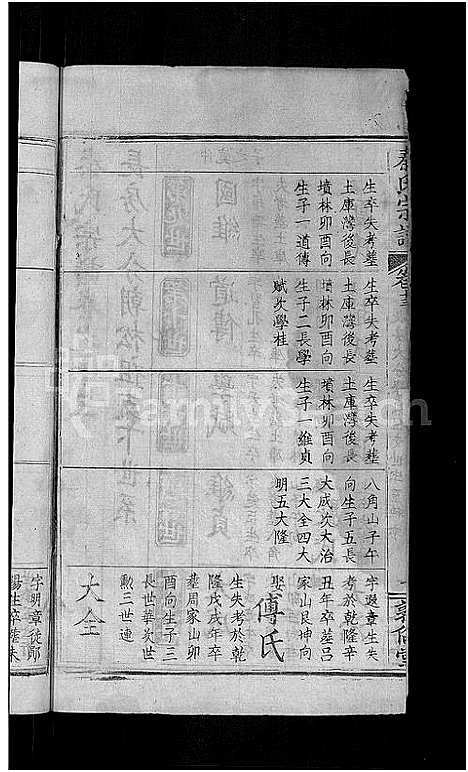 秦氏宗譜
生卒失考墓
土庫灣後長
墳林卯酉向
生子一道傳
生卒失考墓
土庫灣後長
墳林卯酉向
生子二長學
賦次學桂
生卒失考墓
土庫灣後長
墳林卯酉向
生子一維貞
八角山子午
向生子五長
大成次大治
三大全四大
明五大隆
字選章生失
考於乾隆辛
丑年卒葬呂
家山艮坤向
娶傅氏
生失考於乾
隆戊戌年卒
葬周家山卯
酉向生子三
長世華次世
勲三世連
大全
字明章徒鄖
陽生卒葬未